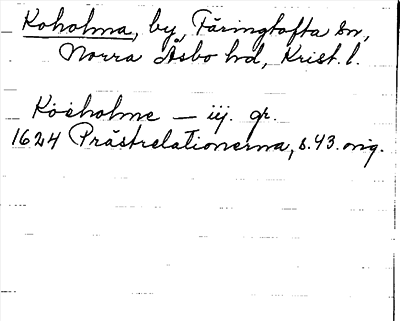 Koholma, by, Färingtofta sn,
Norra Åsbo hd, Krist. l.
Köeholme — iij. gr.
1624 Prästrelationerna, s. 43. orig.